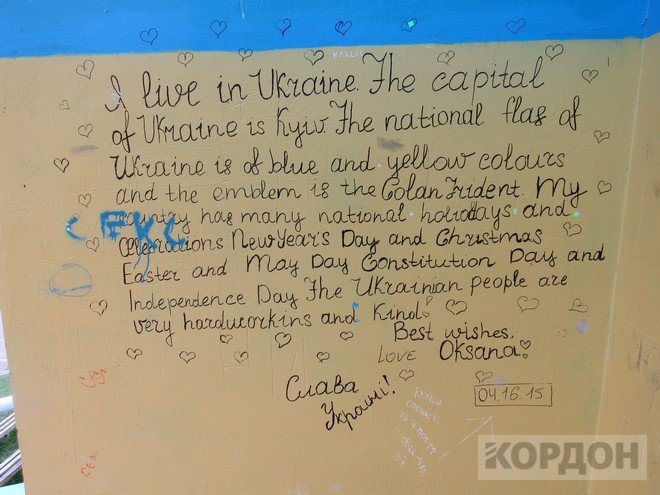 I live in Ukraine. The capital
of Ukraine is Kyiv The national flag of
Ukraine is of blue and yellow colours
and the emblem is the Golan Trident. My
country has many national holiddays and
celebrations New Year's Day and Christmas
Easter and May Day Constitution Day and
Independence Day The Ukrainian people are
very hardworkins and Kind!
Best wishes.
LOVE Oksana!
Слава
Україні!
04.16.15
КОРДОН